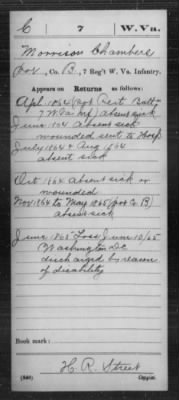 C 7 W. Va.
Morrison Chambers
Co. B, 7 Reg't W. Va. Infantry.
Appears on Returns as follows:
Apl 1864
7 W. Va Inf) absent sick
June 1864 absent sick
wounded sent to Hosp
July 1864 & Aug 1864
absent sick
Oct 1864 absent sick or
wounded
Nov 1864 to May 1865 Co B)
absent sick
June 1865 Loss June 10/65
Washington DC
discharged by reason
of disability
Book mark:
H. R. Street
Copyist.